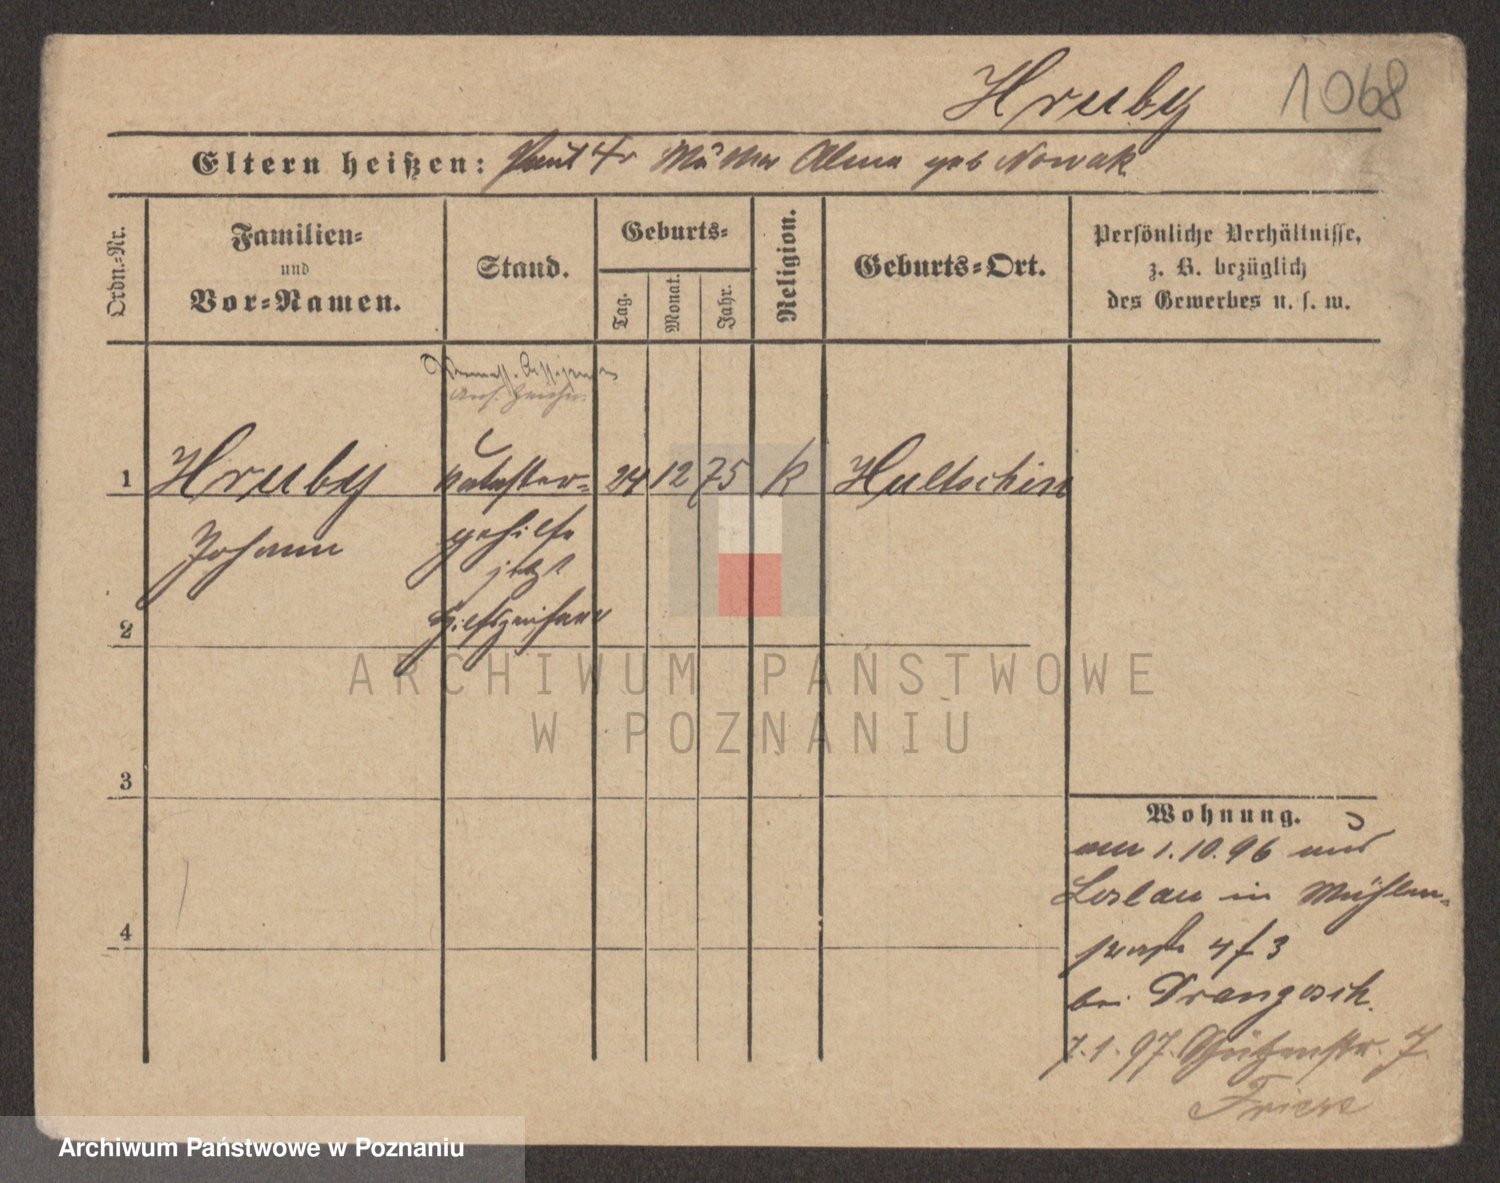 Hruby 1068
Eltern heißen: Paul Hr Mutter Alma geb Nowak
Ordn.-Nr.
Familien-
und
Vor-Namen.
Stand.
Geburts-
Tag.
Monat.
Jahr.
Religion.
Geburts-Ort.
Persönliche Verhältnisse,
z. B. bezüglich
des Gewerbes u. s. w.
1 Hruby Kataster- 24 12 75 k Hultschin
Johann gehilfe
jetzt
2 Hilfszeichner
3
4
Wohnung.
am 1.10.96 aus
Loslau in Mühlen-
straße 4 f 3
bei Drangosch.
7.1.97. Schützenstr. 7
Friese
ARCHIWUM PAŃSTWOWE
W POZNANIU
Archiwum Państwowe w Poznaniu